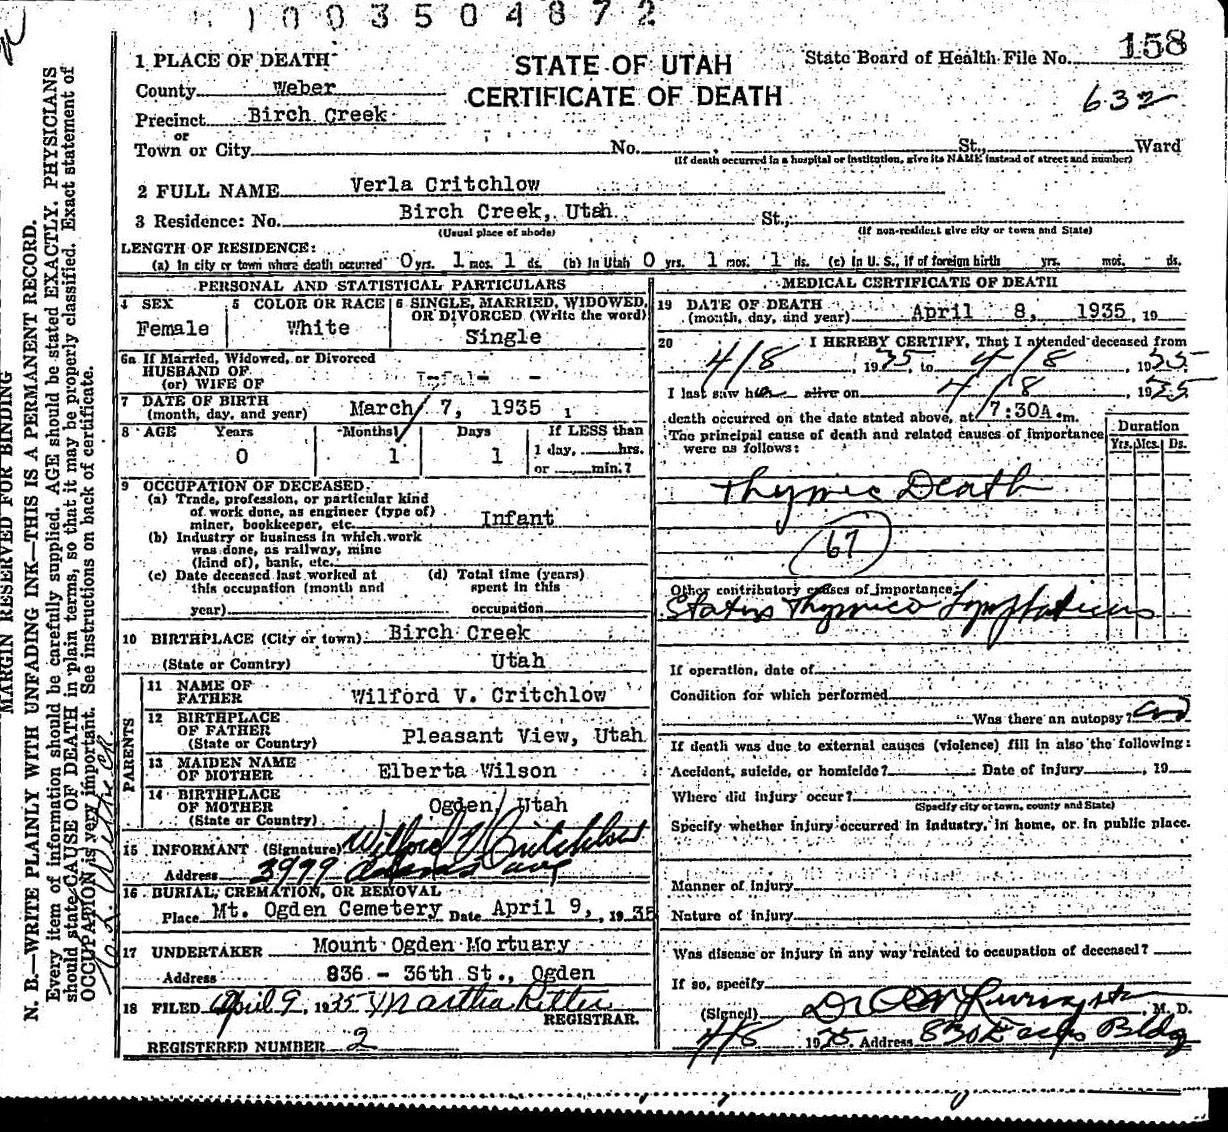 1003504872
1 PLACE OF DEATH
STATE OF UTAH
State Board of Health File No. 158
County Weber
CERTIFICATE OF DEATH
632
Precinct Birch Creek
or
Town or City No. St., Ward
(If death occurred in a hospital or institution, give its NAME instead of street and number)
2 FULL NAME Verla Critchlow
3 Residence: No. Birch Creek, Utah St.,
(Usual place of abode) (If non-resident give city or town and State)
LENGTH OF RESIDENCE:
(a) In city or town where death occurred 0 yrs. 1 mos. 1 ds. (b) In Utah 0 yrs. 1 mos. 1 ds. (c) In U. S., if of foreign birth yrs. mos. ds.
PERSONAL AND STATISTICAL PARTICULARS
4 SEX
Female
5 COLOR OR RACE
White
6 SINGLE, MARRIED, WIDOWED,
OR DIVORCED (Write the word)
Single
6a If Married, Widowed, or Divorced
HUSBAND OF
(or) WIFE OF
7 DATE OF BIRTH
(month, day, and year) March 7, 1935
8 AGE Years Months Days If LESS than
0 1 1 1 day, hrs.
or min.?
9 OCCUPATION OF DECEASED
(a) Trade, profession, or particular kind
of work done, as engineer (type of)
miner, bookkeeper, etc. Infant
(b) Industry or business in which work
was done, as railway, mine
(kind of), bank, etc.
(c) Date deceased last worked at
this occupation (month and
year)
(d) Total time (years)
spent in this
occupation
10 BIRTHPLACE (City or town) Birch Creek
(State or Country) Utah
PARENTS
11 NAME OF
FATHER Wilford V. Critchlow
12 BIRTHPLACE
OF FATHER
(State or Country) Pleasant View, Utah
13 MAIDEN NAME
OF MOTHER Elberta Wilson
14 BIRTHPLACE
OF MOTHER
(State or Country) Ogden, Utah
15 INFORMANT (Signature) Wilford V Critchlow
Address 3999 Adams ave
16 BURIAL, CREMATION, OR REMOVAL
Place Mt. Ogden Cemetery Date April 9, 1935
17 UNDERTAKER Mount Ogden Mortuary
Address 836 - 36th St., Ogden
18 FILED April 9, 1935 Martha Ritter
REGISTRAR.
REGISTERED NUMBER 2
MEDICAL CERTIFICATE OF DEATH
19 DATE OF DEATH
(month, day, and year) April 8, 1935, 19
20 I HEREBY CERTIFY, That I attended deceased from
4/8, 1935, to 4/8, 1935
I last saw her alive on 4/8, 1935
death occurred on the date stated above, at 7:30A.m.
The principal cause of death and related causes of importance
were as follows:
Duration
Yrs. Mos. Ds.
Thymic Death
67
Other contributory causes of importance:
Status Thymico Lymphaticus
If operation, date of
Condition for which performed
Was there an autopsy?
If death was due to external causes (violence) fill in also the following:
Accident, suicide, or homicide? Date of injury, 19
Where did injury occur?
(Specify city or town, county and State)
Specify whether injury occurred in industry, in home, or in public place.
Manner of injury
Nature of injury
Was disease or injury in any way related to occupation of deceased?
If so, specify
(Signed) Dr M. D.
4/8 1935. Address 830 Bldg
MARGIN RESERVED FOR BINDING
N. B.—WRITE PLAINLY WITH UNFADING INK—THIS IS A PERMANENT RECORD.
Every item of information should be carefully supplied. AGE should be stated EXACTLY. PHYSICIANS
should state CAUSE OF DEATH in plain terms, so that it may be properly classified. Exact statement of
OCCUPATION is very important. See instructions on back of certificate.